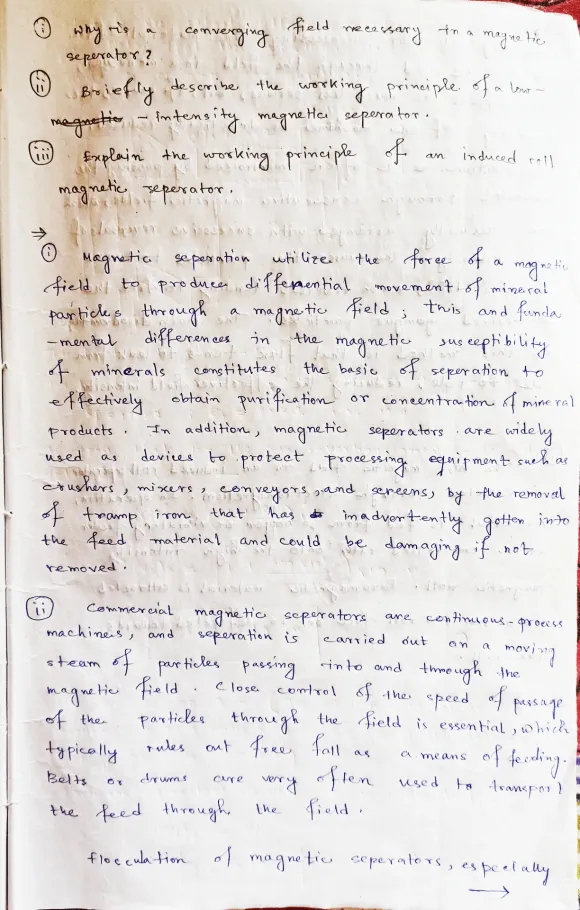 (i) Why is a converging field necessary in a magnetic
seperator?
(ii) Briefly describe the working principle of a low-
magnetic - intensity magnetic seperator.
(iii) Explain the working principle of an induced roll
magnetic seperator.
→
(i) Magnetic seperation utilize the force of a magnetic
field to produce differential movement of mineral
particles through a magnetic field; this and funda
-mental differences in the magnetic susceptibility
of minerals constitutes the basic of seperation to
effectively obtain purification or concentration of mineral
products. In addition, magnetic seperators are widely
used as devices to protect processing equipment such as
crushers, mixers, conveyors, and screens, by the removal
of tramp iron that has inadvertently gotten into
the feed material and could be damaging if not
removed.
(ii) Commercial magnetic seperators are continuous-process
machines, and seperation is carried out on a moving
steam of particles passing into and through the
magnetic field. Close control of the speed of passage
of the particles through the field is essential, which
typically rules out free fall as a means of feeding.
Belts or drums are very often used to transport
the feed through the field.
flocculation of magnetic seperators, especially
→